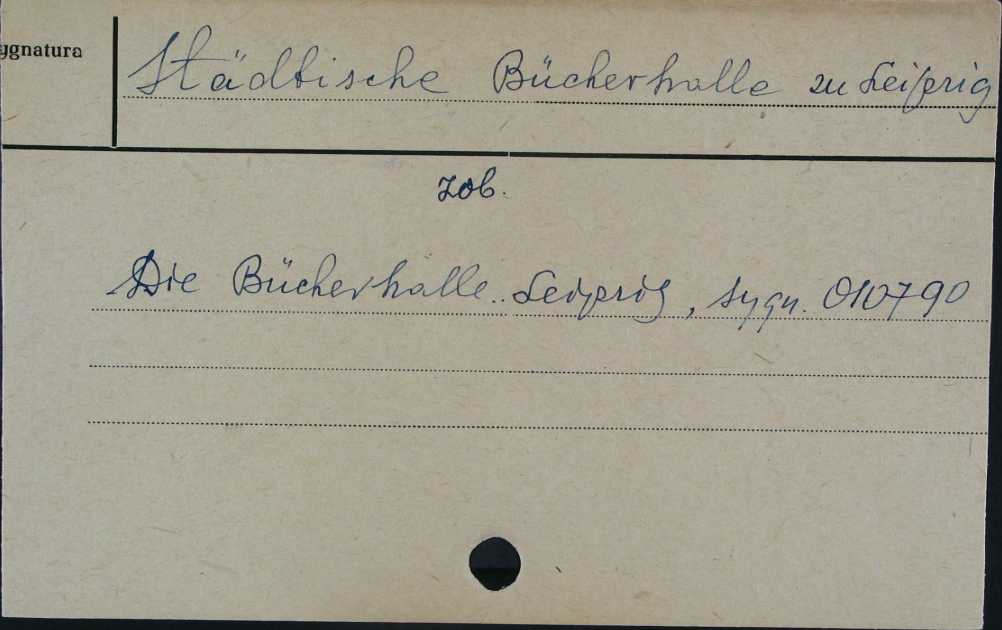 ygnatura
Städtische Bücherhalle zu Leipzig
zob.
Die Bücherhalle.. Leipzig, sygn. 010790